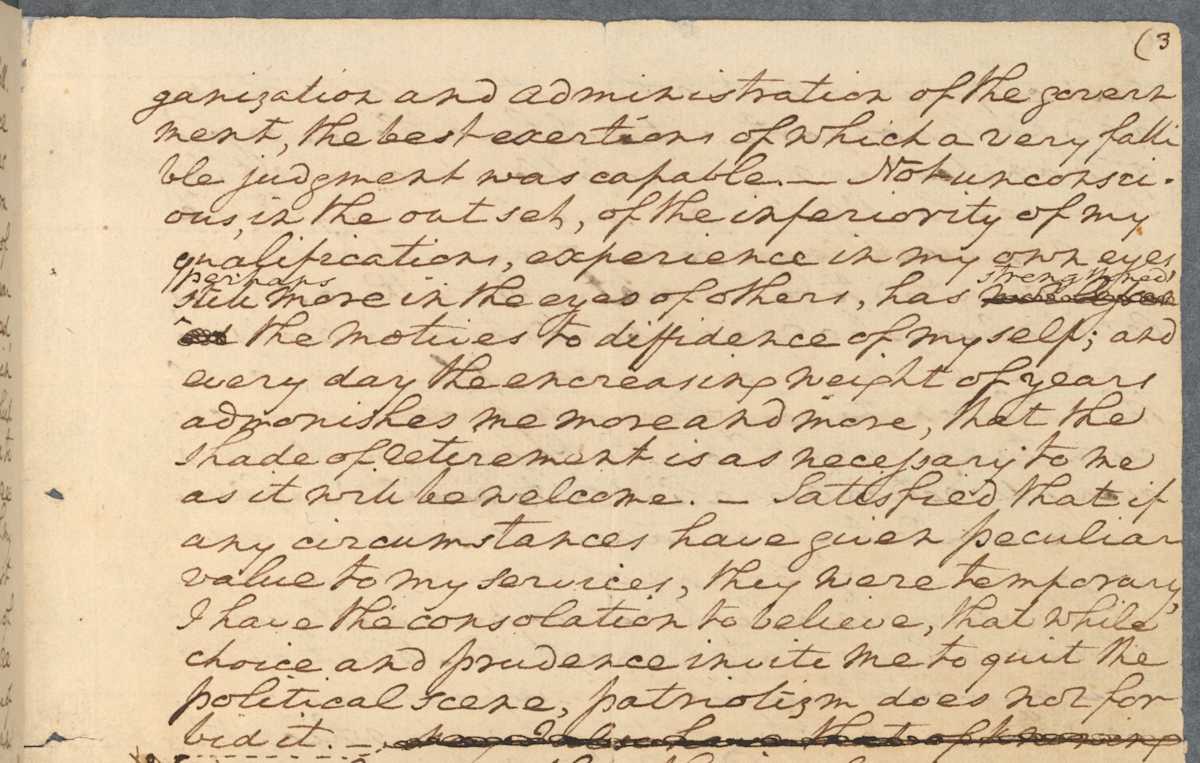 (3
ganization and administration of the govern
ment, the best exertions of which a very falli
ble judgment was capable. — Not unconsci-
ous, in the outset, of the inferiority of my
qualifications, experience in my own eyes,
perhaps strengthned
still more in the eyes of others, has
the motives to diffidence of myself; and
every day the encreasing weight of years
admonishes me more and more, that the
shade of retirement is as necessary to me
as it will be welcome. — Satisfied that if
any circumstances have given peculiar
value to my services, they were temporary,
I have the consolation to believe, that while
choice and prudence invite me to quit the
political scene, patriotism does not for
bid it. — may I also have that of knowing